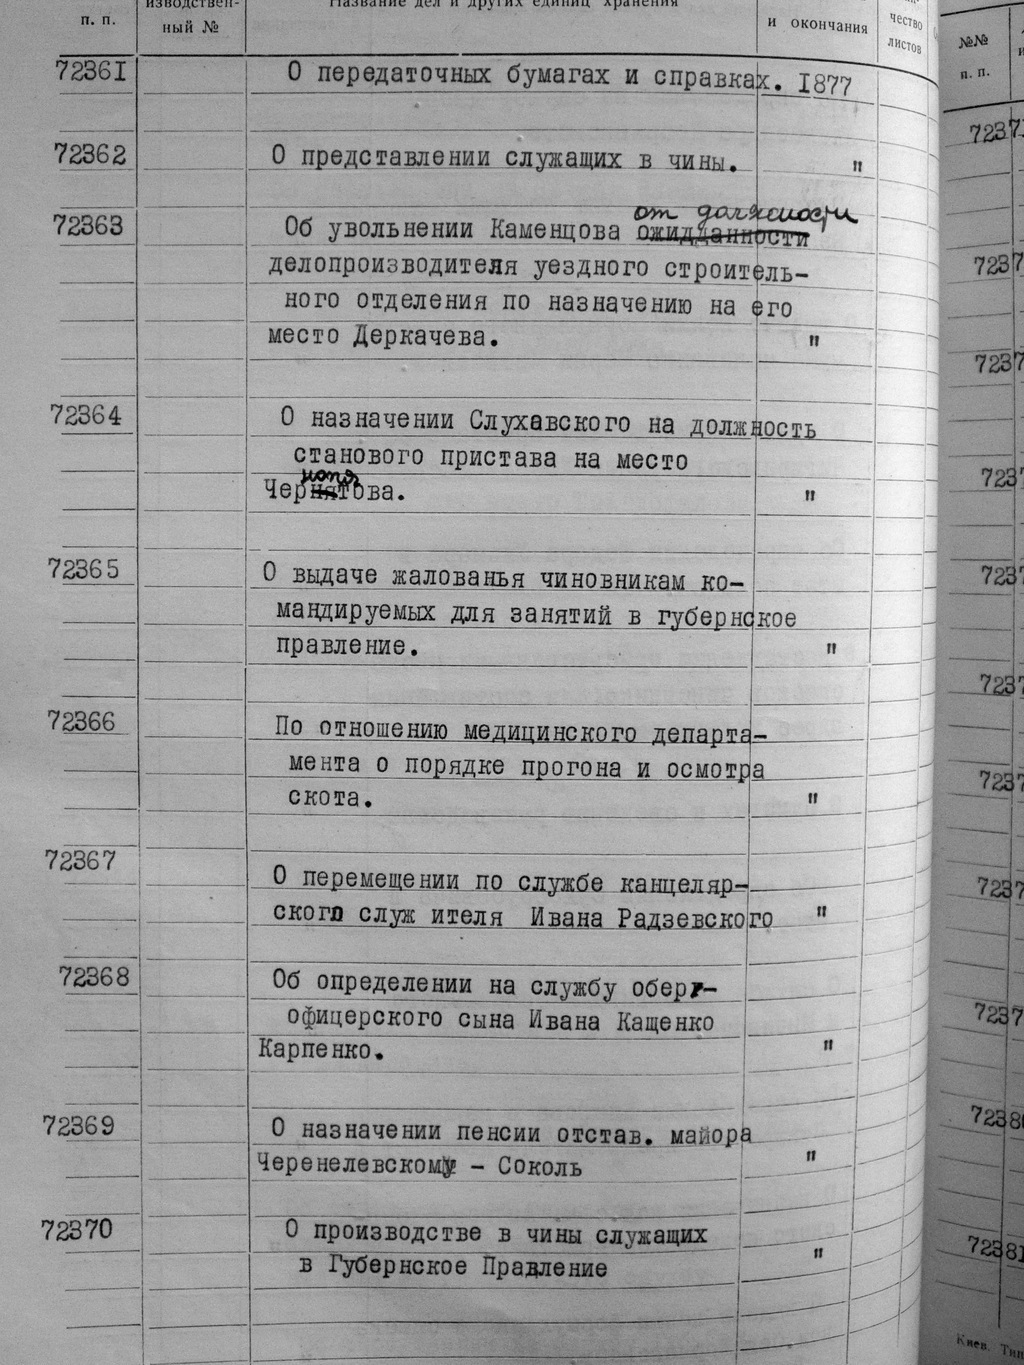 п. п.
изводствен-
ный №
Название дел и других единиц хранения
и окончания
чество
листов
72361 О передаточных бумагах и справках. 1877
72362 О представлении служащих в чины. "
от должности
72363 Об увольнении Каменцова ожидданности
делопроизводителя уездного строитель-
ного отделения по назначению на его
место Деркачева. "
72364 О назначении Слухавского на должность
станового пристава на место
Чернятова. "
72365 О выдаче жалованья чиновникам ко-
мандируемых для занятий в губернское
правление. "
72366 По отношению медицинского департа-
мента о порядке прогона и осмотра
скота. "
72367 О перемещении по службе канцеляр-
ского служ ителя Ивана Радзевского "
72368 Об определении на службу обер-
офицерского сына Ивана Кащенко
Карпенко. "
72369 О назначении пенсии отстав. майора
Черенелевскому - Соколь "
72370 О производстве в чины служащих
в Губернское Правление "
№№
п. п.
Киев. Тип